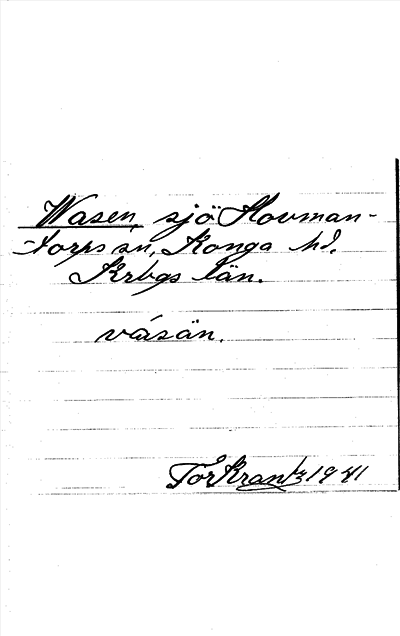 Wasen, sjö Hovman-
torps sn, Konga hd.
Krbgs län.
väsän.
Tor Krantz 1941